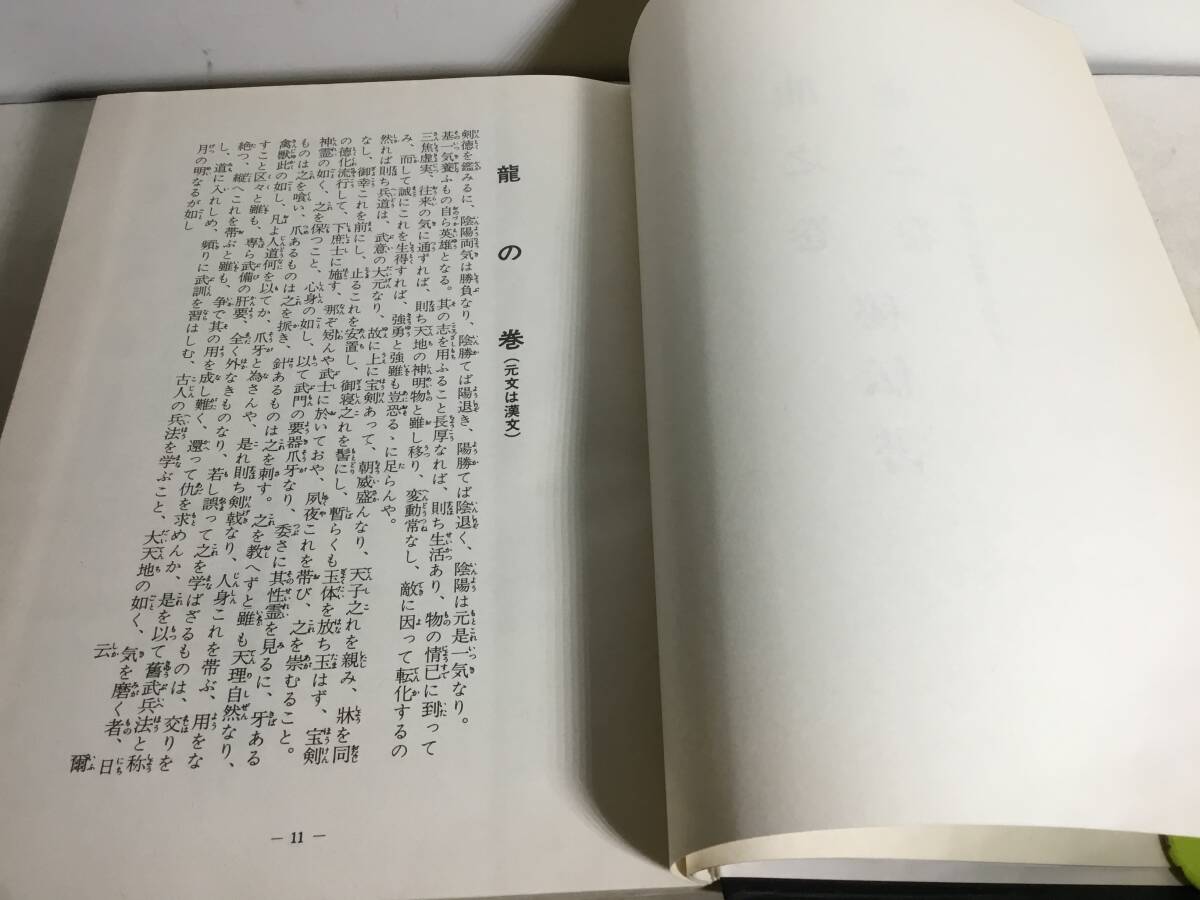 龍の巻（元文は漢文）
剣徳を鑑みるに、陰陽両気は勝負なり、陰勝てば陽退き、陽勝てば陰退く、陰陽は元是一気なり。
基一気養ふもの自ら英雄となる。其の志を用ふること長厚なれば、則ち生活あり、物の情已に到って
三焦虚実、往来の気に通ずれば、則ち天地の神明物と雖し移り、変動常なし、敵に因って転化するの
み、而して誠にこれを生得すれば、強勇と強雖も豈恐るゝに足らんや。
然れば則ち兵道は、武意の大元なり、故に上に宝剣あって、朝威盛んなり、天子之れを親み、牀を同
なし、御幸これを前にし、止るこれを安置し、御寝之れを髻にし、暫らくも玉体を放ち玉はず、宝剣
の徳化流行して、下庶士に施す、那ぞ矧んや武士に於いておや、夙夜これを帯び、之を崇むること。
神霊の如く、之を保つこと、心身の如し、以て武門の要器爪牙なり、委さに其性霊を見るに、牙ある
ものは之を喰い、爪あるものは之を抓き、針あるものは之を刺す。之を教へずと雖も天理自然なり、
禽獣此の如し、凡よ人道何を以てか、爪牙と為さんや、是れ則ち剣戟なり、人身これを帯ぶ、用をな
すこと区々と雖も、専ら武備の肝要、全く外なきものなり、若し誤って之を学ばざるものは、交りを
絶つ、縦へこれを帯ぶと雖も、争で其の用を成し難く、還って仇を求めんか、是を以て舊武兵法と称
し、道に入れしめ、頻りに武訓を習はしむ、古人の兵法を学ぶこと、大天地の如く、気を磨く者、日
月の明なるが如し云爾
― 11 ―